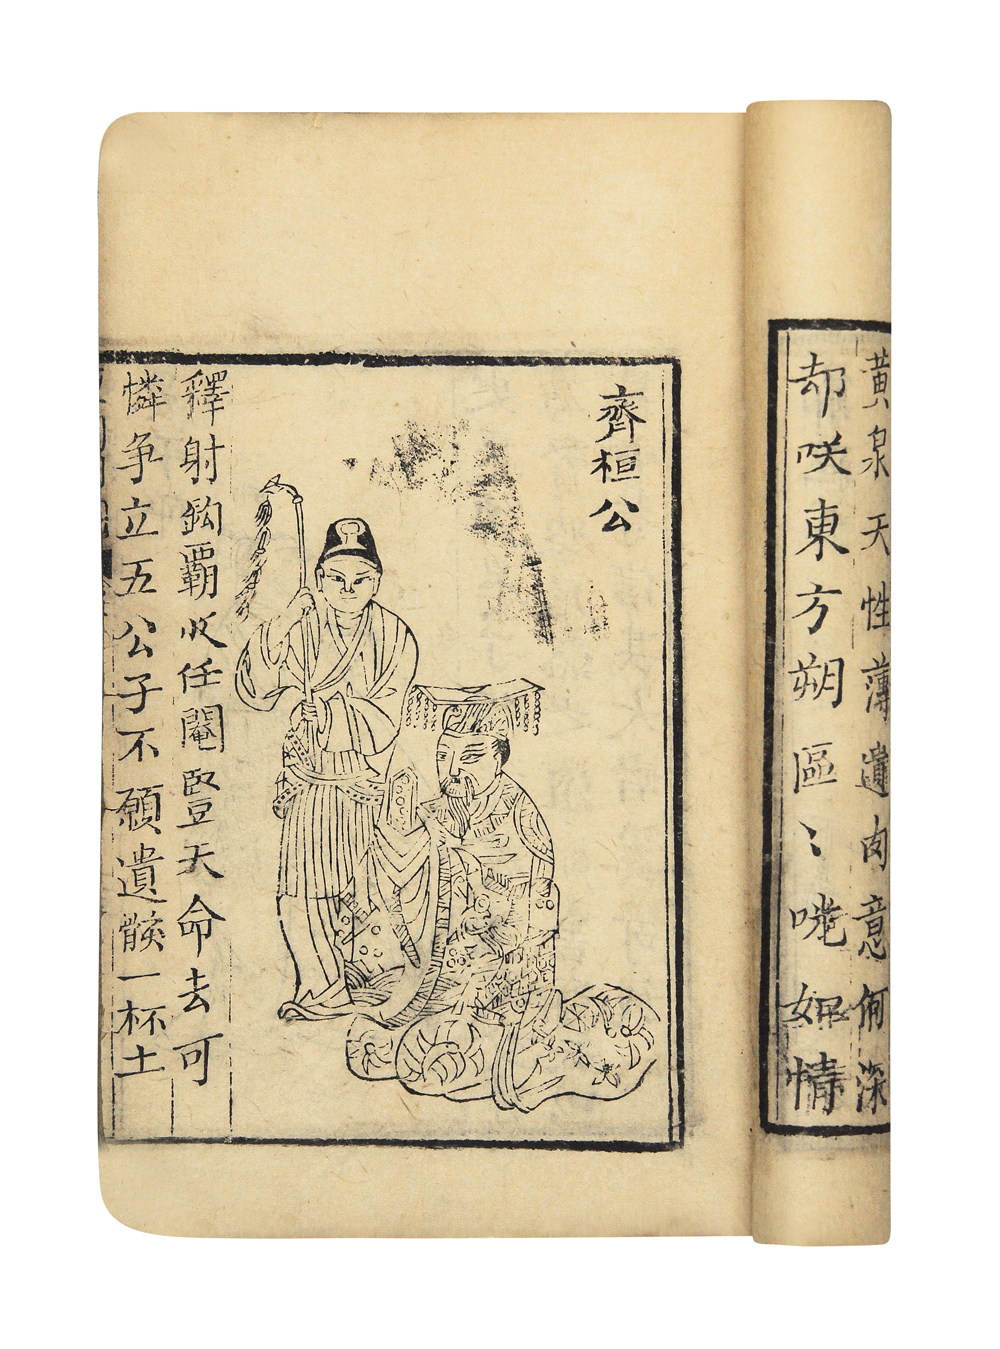 黃泉天性薄遺肉意何深
却咲東方朔區〻嘵如情
齊桓公
釋射鈎覇收任閹竪天命去可
憐争立五公子不願遺骸一杯土